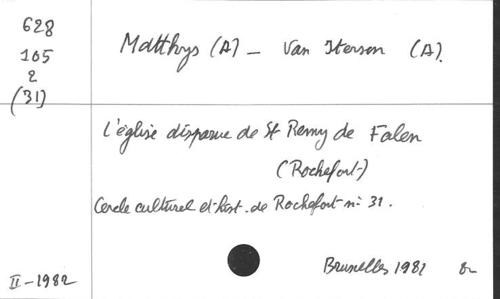 628
105
2
(31)
Matthys (A) – Van Iterson (A).
L'église disparue de St Remy de Falen
(Rochefort)
Cercle culturel et hist. de Rochefort n° 31.
Bruxelles 1982 82
II-1982